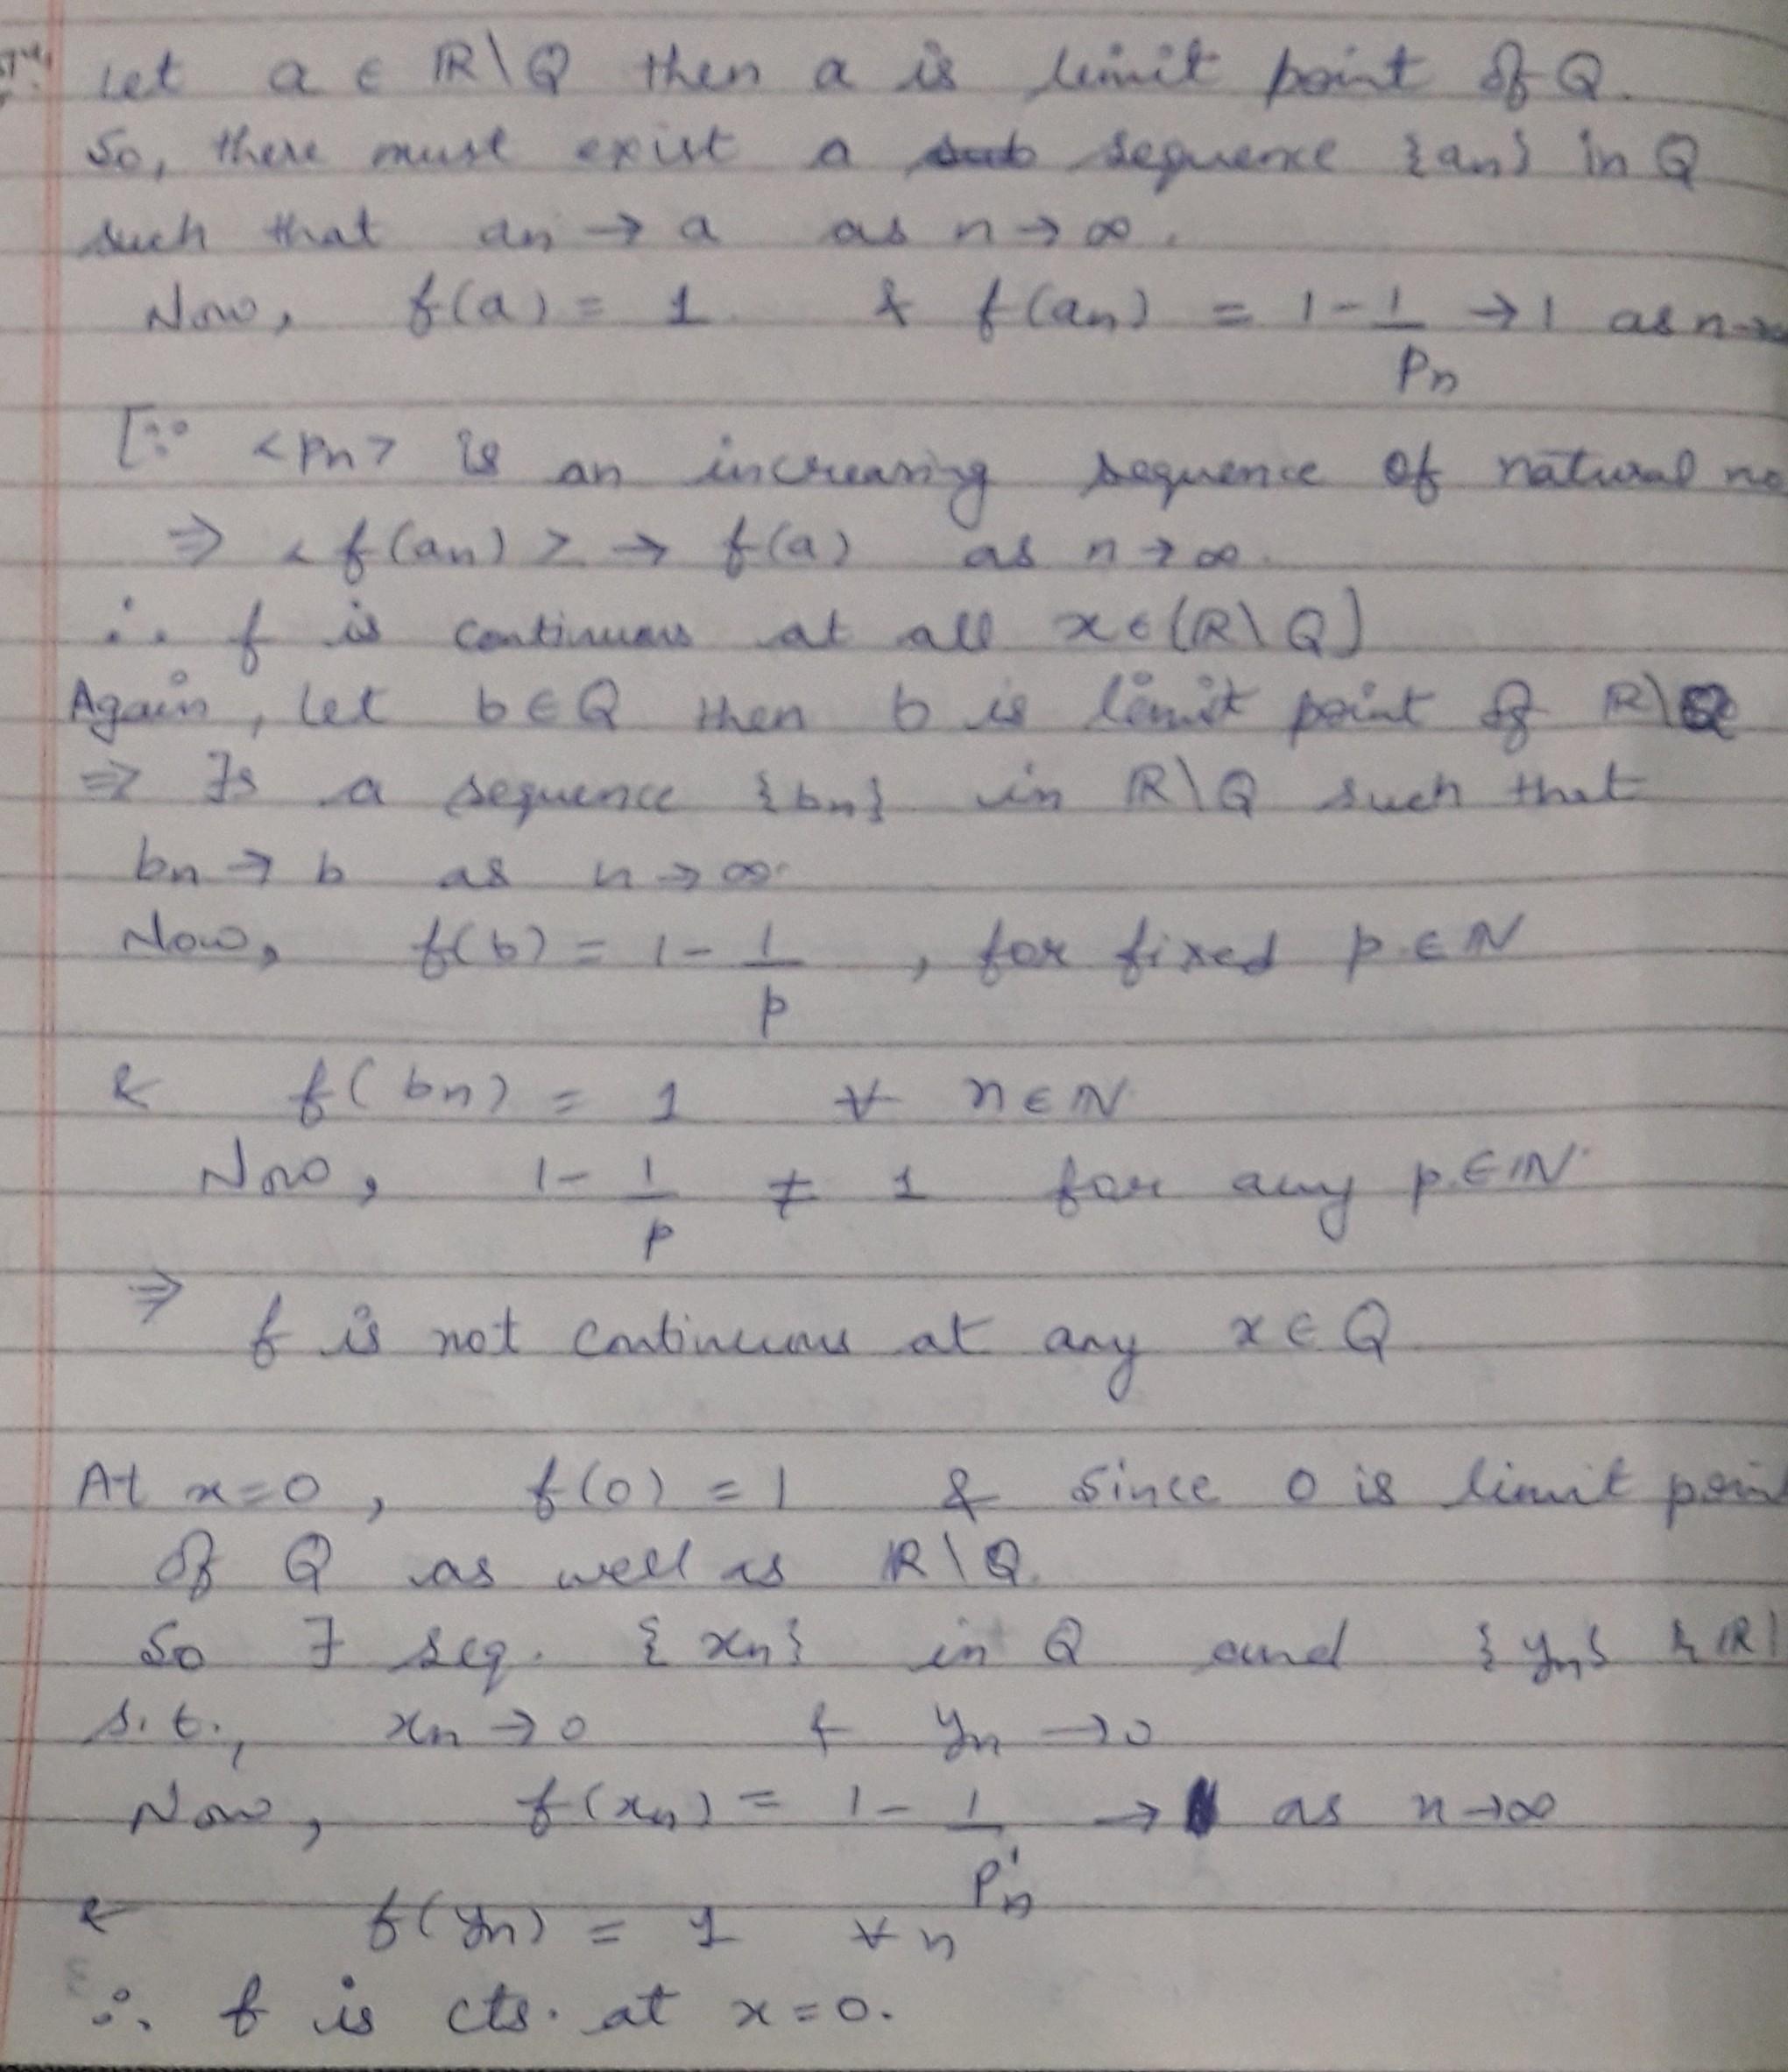 Let a ∈ ℝ\Q then a is limit point of Q.
So, there must exist a sub sequence {an} in Q
such that an → a as n → ∞.
Now, f(a) = 1 & f(an) = 1 - 1/Pn → 1 as n→∞
[∵ <Pn> is an increasing sequence of natural no
⇒ <f(an)> → f(a) as n → ∞.
∴ f is continuous at all x ∈ (ℝ\Q)
Again, let b ∈ Q then b is limit point of ℝ\Q
⇒ ∃s a sequence {bn} in ℝ\Q such that
bn → b as n → ∞.
Now, f(b) = 1 - 1/p , for fixed p ∈ ℕ
& f(bn) = 1 ∀ n ∈ ℕ
Now, 1 - 1/p ≠ 1 for any p ∈ ℕ
⇒ f is not continuous at any x ∈ Q
At x=0, f(0) = 1 & since 0 is limit point
of Q as well as ℝ\Q.
So ∃ seq. {xn} in Q and {yn} ℝ\
s.t., xn → 0 & yn → 0
Now, f(xn) = 1 - 1/P'n → 1 as n→∞
& f(yn) = 1 ∀ n
∴ f is cts. at x=0.